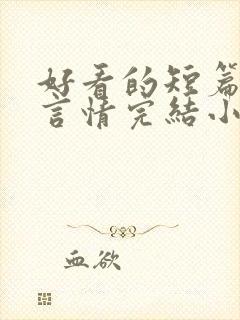 好看的短篇
言情完結小
血欲